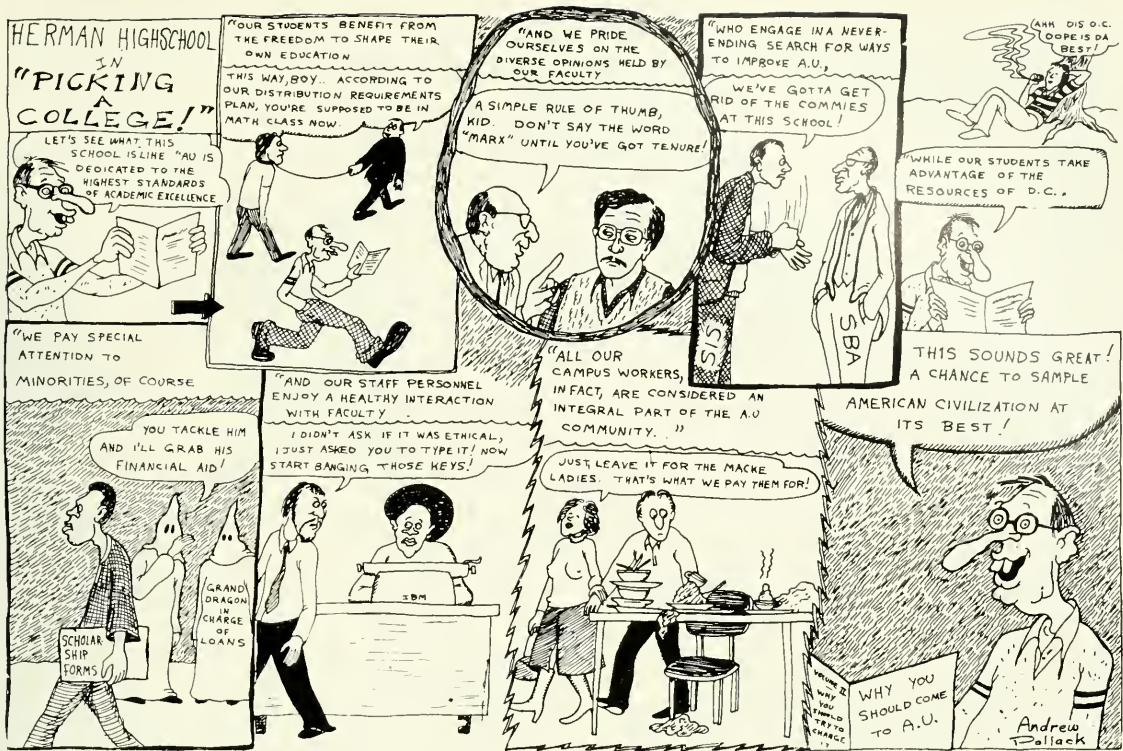 HERMAN HIGHSCHOOL
IN
"PICKING
A
COLLEGE!"
LET'S SEE WHAT THIS
SCHOOL IS LIKE "AU IS
DEDICATED TO THE
HIGHEST STANDARDS
OF ACADEMIC EXCELLENCE
"OUR STUDENTS BENEFIT FROM
THE FREEDOM TO SHAPE THEIR
OWN EDUCATION
THIS WAY, BOY.. ACCORDING TO
OUR DISTRIBUTION REQUIREMENTS
PLAN, YOU'RE SUPPOSED TO BE IN
MATH CLASS NOW.
"AND WE PRIDE
OURSELVES ON THE
DIVERSE OPINIONS HELD BY
OUR FACULTY
A SIMPLE RULE OF THUMB,
KID. DON'T SAY THE WORD
"MARX" UNTIL YOU'VE GOT TENURE!
"WHO ENGAGE IN A NEVER-
ENDING SEARCH FOR WAYS
TO IMPROVE A.U.,
WE'VE GOTTA GET
RID OF THE COMMIES
AT THIS SCHOOL!
SIS
SBA
AHH DIS O.C.
DOPE IS DA
BEST!
"WHILE OUR STUDENTS TAKE
ADVANTAGE OF THE
RESOURCES OF D.C..
"WE PAY SPECIAL
ATTENTION TO
MINORITIES, OF COURSE
YOU TACKLE HIM
AND I'LL GRAB HIS
FINANCIAL AID!
SCHOLAR
SHIP
FORMS
GRAND
DRAGON
IN
CHARGE
OF
LOANS
"AND OUR STAFF PERSONNEL
ENJOY A HEALTHY INTERACTION
WITH FACULTY .
I DIDN'T ASK IF IT WAS ETHICAL,
I JUST ASKED YOU TO TYPE IT! NOW
START BANGING THOSE KEYS!
IBM
"ALL OUR
CAMPUS WORKERS,
IN FACT, ARE CONSIDERED AN
INTEGRAL PART OF THE A.U
COMMUNITY. . "
JUST LEAVE IT FOR THE MACKE
LADIES. THAT'S WHAT WE PAY THEM FOR!
THIS SOUNDS GREAT!
A CHANCE TO SAMPLE
AMERICAN CIVILIZATION AT
ITS BEST!
VOLUME II
WHY
YOU
SHOULD
TRY TO
CHANGE
IT
WHY YOU
SHOULD COME
TO A.U.
Andrew
Pollack